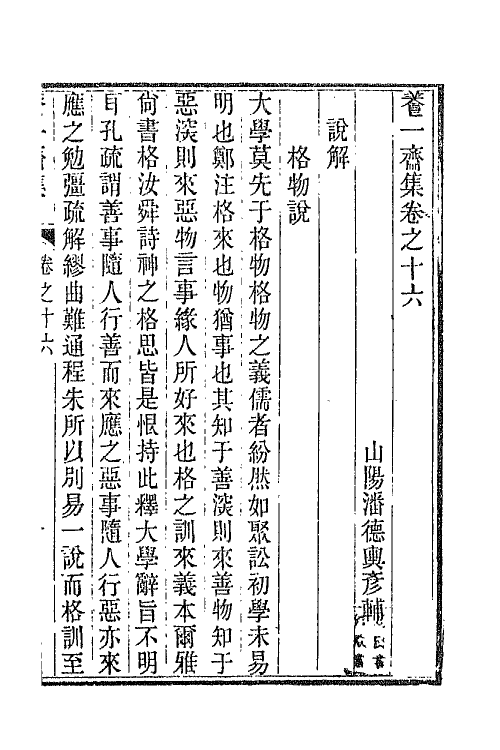 養一齋集卷之十六
山陽潘德輿彥輔
說解
格物說
大學莫先于格物格物之義儒者紛然如聚訟初學未易
明也鄭注格來也物猶事也其知于善深則來善物知于
惡深則來惡物言事緣人所好來也格之訓來義本爾雅
尙書格汝舜詩神之格思皆是恨持此釋大學辭旨不明
自孔疏謂善事隨人行善而來應之惡事隨人行惡亦來
應之勉彊疏解繆曲難通程朱所以別易一說而格訓至
養一齋集 卷之十六